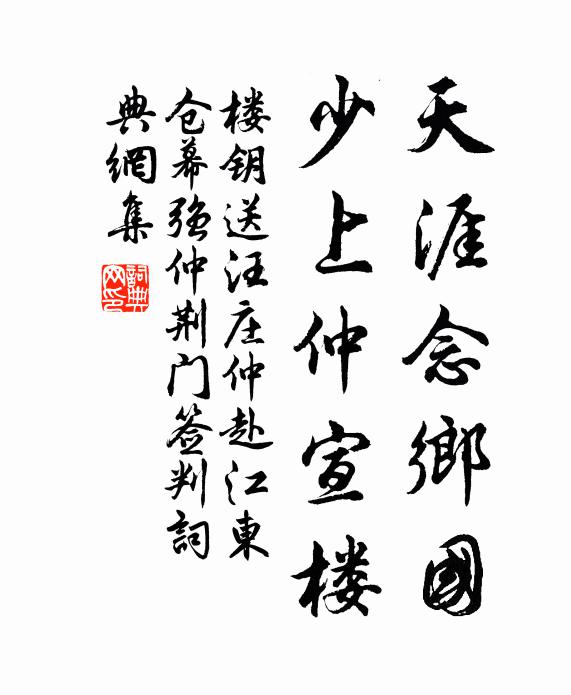 天涯念鄉國
少上仲宣楼
楼钥送汪庄仲赴江東
仓幕強仲荆门签判詞
典網集
詞典網印